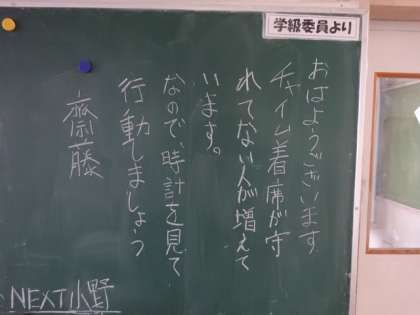 学級委員より
おはようございます
チャイム着席が守
れてない人が増えて
います。
なので、時計を見て
行動しましょう
齋藤
NEXT小野